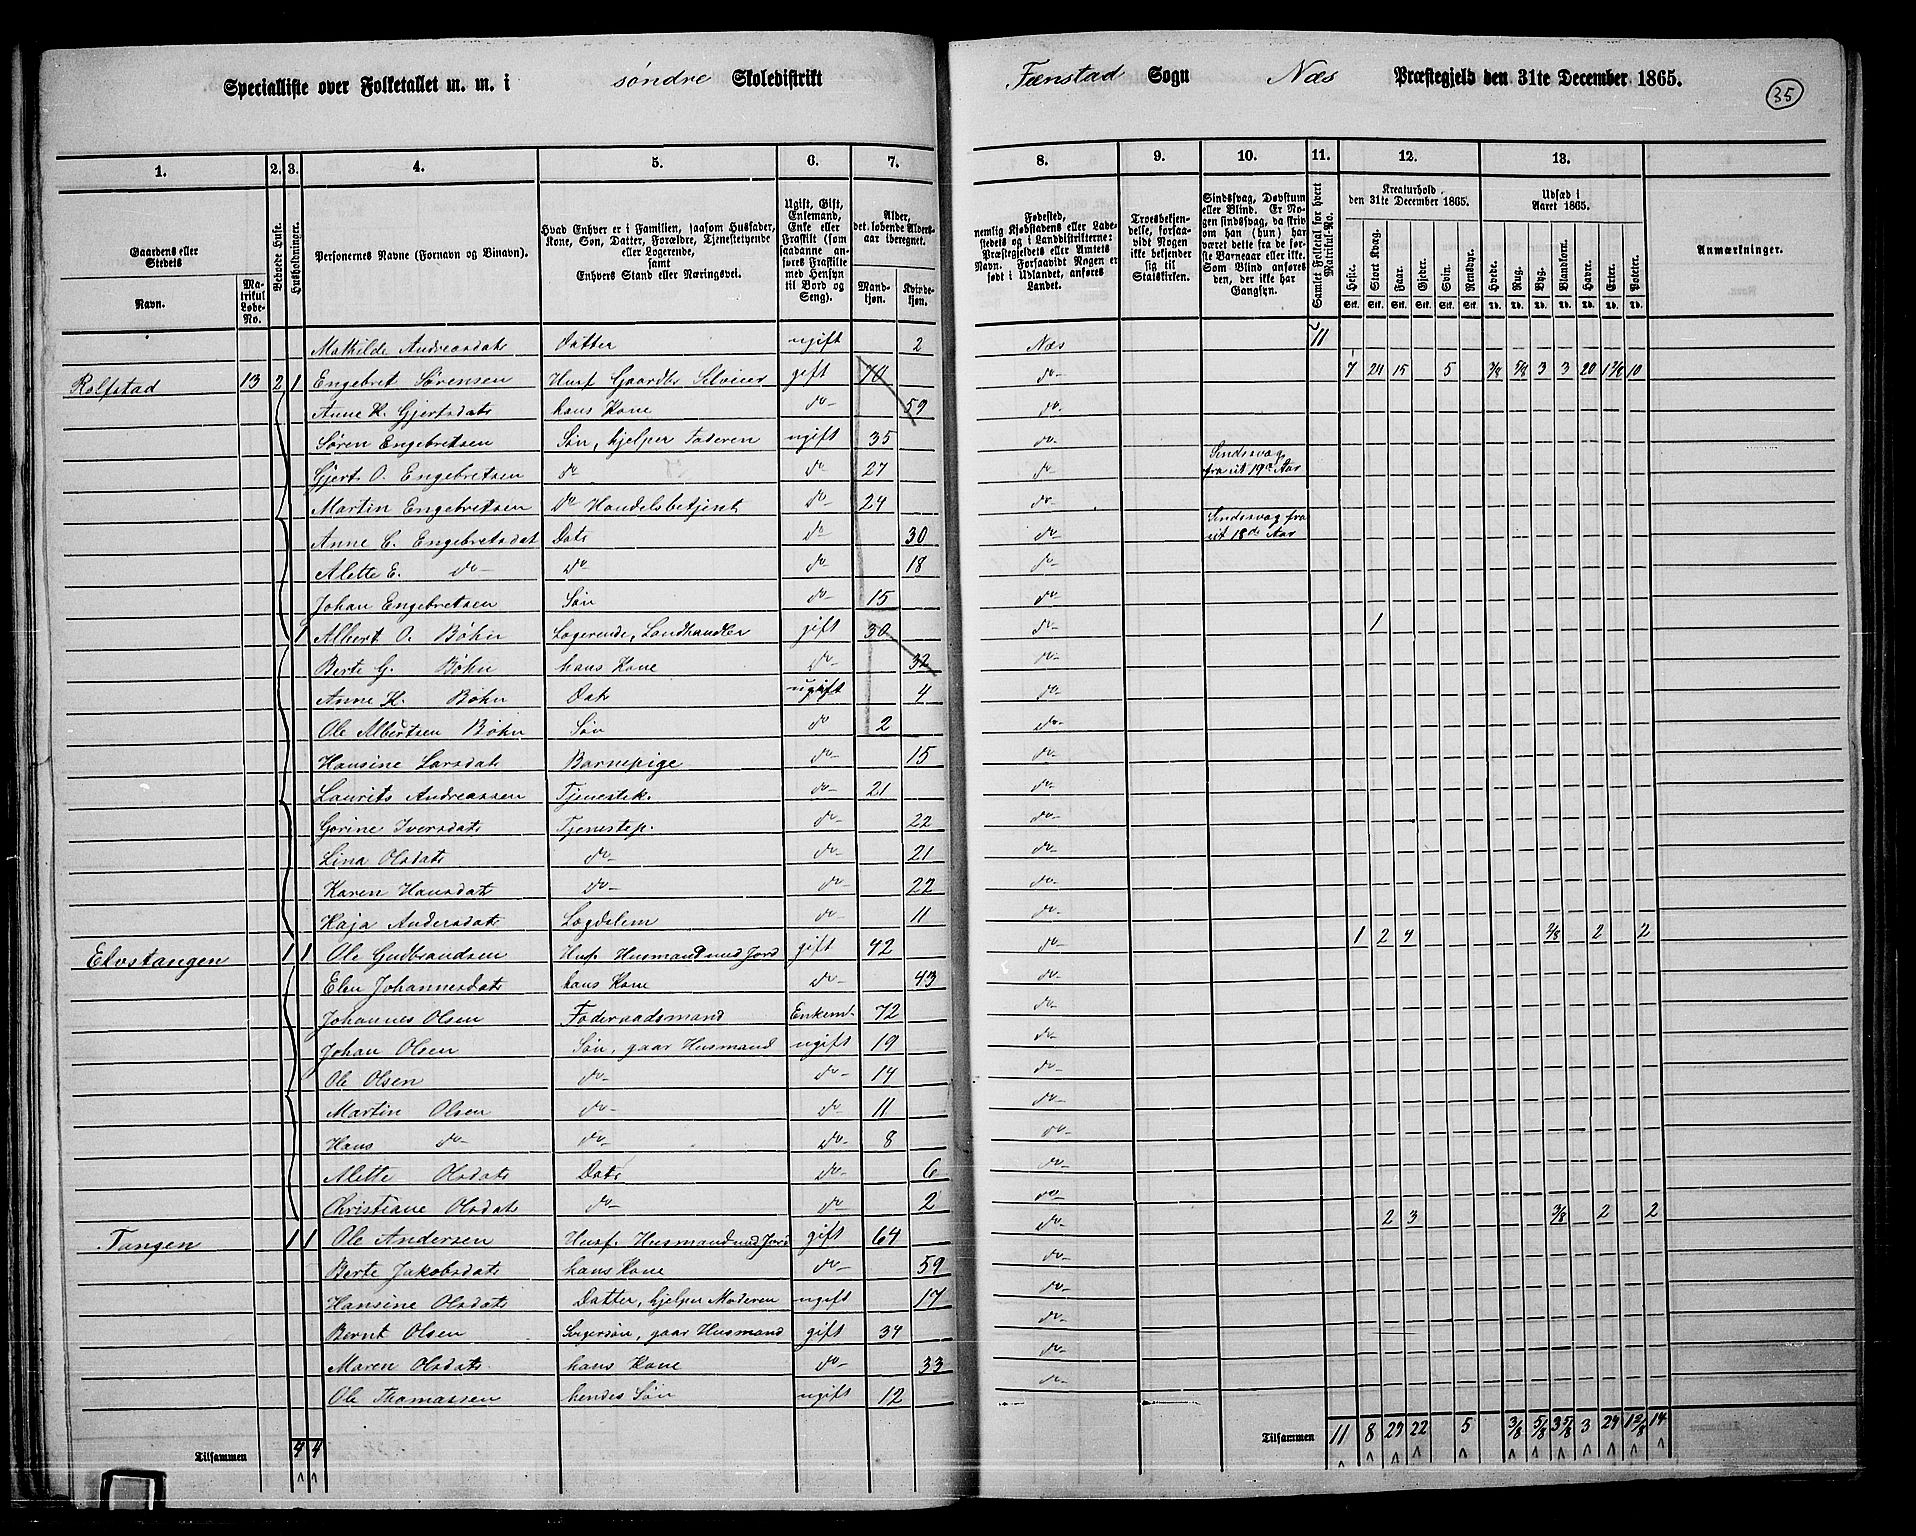 Specialliste over Folketallet m. m. i søndre Skoledistrikt Fænstad Sogn Næs Præstegjeld den 31te December 1865.
35
1. 2. 3. 4. 5. 6. 7. 8. 9. 10. 11. 12. 13.
Gaardens eller Stedets
Navn.
Matrikul Løbe-No.
Beboede Huse.
Husholdninger.
Personernes Navne (Fornavn og Binavn).
Hvad Enhver er i Familien, saasom Husfader, Kone, Søn, Datter, Forældre, Tjenestetyende eller Logerende, samt Enhvers Stand eller Næringsvei.
Ugift, Gift, Enkemand, Enke eller Fraskilt (som saadanne anføres Fraskilte med Hensyn til Bord og Seng).
Alder, det løbende Aldersaar iberegnet.
Mandkjøn.
Kvindekjøn.
Fødested, nemlig Kjøbstadens eller Ladestedets og i Landdistrikterne: Præstegjeldets eller Amtets Navn. Forsaavidt Nogen er født i Udlandet, anføres Landet.
Troesbekjendelse, forsaavidt Nogen ikke bekjender sig til Statskirken.
Sindssvag, Døvstum eller Blind. Er Nogen sindssvag, da skrives om han (hun) har været dette fra de første Barneaar eller ikke. Som Blind anføres den, der ikke har Gangsyn.
Samlet Folketal for hvert Matrikul-No.
Kreaturhold den 31te December 1865.
Heste. Stort Kvæg. Faar. Gjeder. Svin. Rensdyr.
Udsæd i Aaret 1865.
Hvede. Rug. Byg. Blandkorn. Havre. Erter. Poteter.
Anmærkninger.
Mathilde Andreasdatr Datter ugift 2 Næs 11
Rolfstad 13 2 1 Engebret Sørensen Husf Gaardbr Selveier gift 70 do 7 24 15 5 3/8 5/8 3 3 20 1 2/8 10
Anne K. Gjertsdatr hans Kone do 59 do
Søren Engebretsen Søn, hjelper Faderen ugift 35 do
Gjert O. Engebretsen do do 27 do Sindssvag fra sit 19de Aar
Martin Engebretsen do Handelsbetjent do 24 do
Anne C. Engebretsdat Datr do 30 do Sindssvag fra sit 18de Aar
Alette E. do do do 18 do
Johan Engebretsen Søn do 15 do
1 Albert O. Bøhn Logerende, Landhandler gift 30 do 1
Berte G. Bøhn hans Kone do 32 do
Anne K. Bøhn Datr ugift 4 do
Ole Albertsen Bøhn Søn do 2 do
Hansine Larsdatr Barnepige do 15 do
Laurits Andreassen Tjenestek. do 21 do
Gorine Iversdatr Tjenestep. do 22 do
Lina Olsdatr do do 21 do
Karen Hansdatr do do 22 do
Kaja Andersdatr Lægdslem do 11 do
Elvstangen 1 1 Ole Gudbrandsen Husf. Husmand med Jord gift 42 do 1 2 4 2/8 2 2
Elen Johannesdatr hans Kone do 43 do
Johannes Olsen Føderaadsmand Enkem. 72 do
Johan Olsen Søn, gaar Husmand ugift 19 do
Ole Olsen do do 14 do
Martin Olsen do do 11 do
Hans do do do 8 do
Alette Olsdatr Datr do 6 do
Christiane Olsdatr do do 2 do
Tangen 1 1 Ole Andersen Husf. Husmand med Jord gift 64 do 2 3 3/8 2 2
Berte Jakobsdatr hans Kone do 59 do
Hansine Olsdatr Datter, hjelper Moderen ugift 17 do
Bernt Olsen Svigersøn, gaar Husmand gift 34 do
Maren Olsdatr hans Kone do 33 do
Ole Thomassen hendes Søn ugift 12
Tilsammen 4 4 Tilsammen 11 8 29 22 5 3/8 5/8 3 5/8 3 24 1 2/8 14